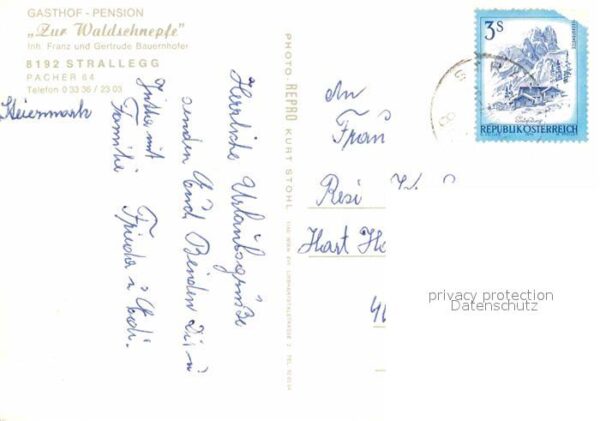 GASTHOF - PENSION
„Zur Waldschnepfe"
Inh. Franz und Gertrude Bauernhofer
8192 STRALLEGG
PACHER 64
Telefon 0 33 36 / 23 03
Steiermark
Herrliche Urlaubsgrüße
senden Euch Beiden
Familie Frieda u.
PHOTO-REPRO KURT STOHL
An
Resi
Hart
3S
REPUBLIK ÖSTERREICH
privacy protection
Datenschutz